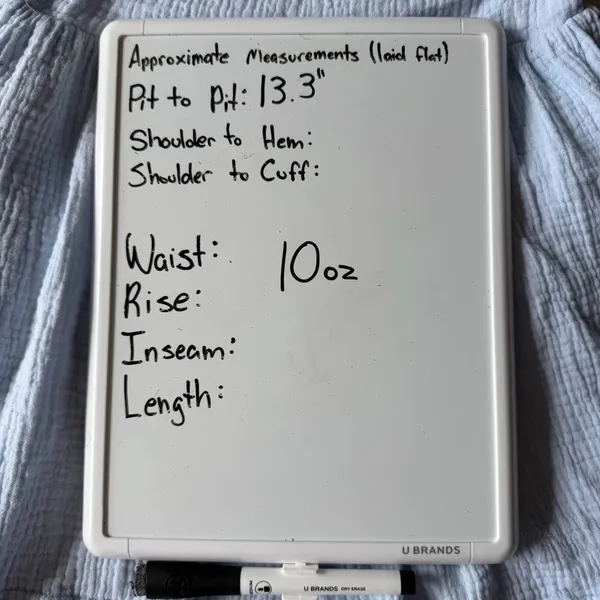 Approximate Measurements (laid flat)
Pit to Pit: 13.3"
Shoulder to Hem:
Shoulder to Cuff:
Waist:
10oz
Rise:
Inseam:
Length:
U BRANDS
U BRANDS DRY ERASE